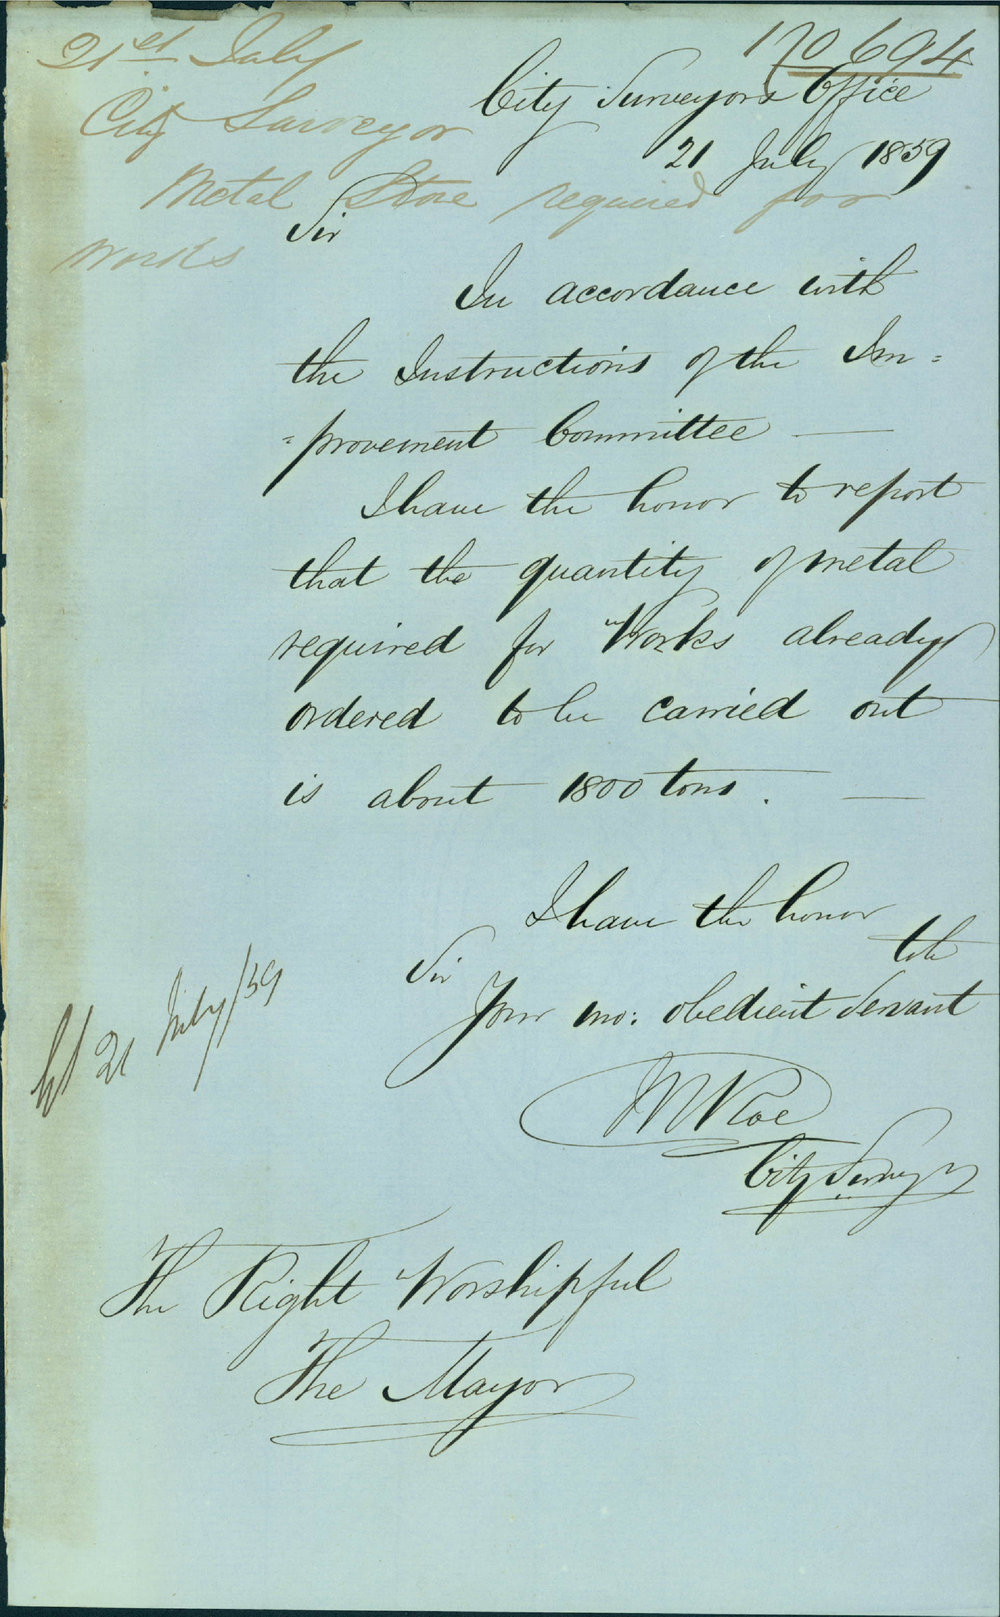 21st July
City Surveyor
Metal Stone required for
works
170 694
City Surveyors Office
21 July 1859
Sir
In accordance with
the Instructions of the Im=
=provement Committee —
I have the honor to report
that the quantity of metal
required for Works already
ordered to be carried out
is about 1800 tons. —
I have the honor
to be
Sir
Your mo: obedient Servant
City Surveyor
21 July/59
The Right Worshipful
The Mayor